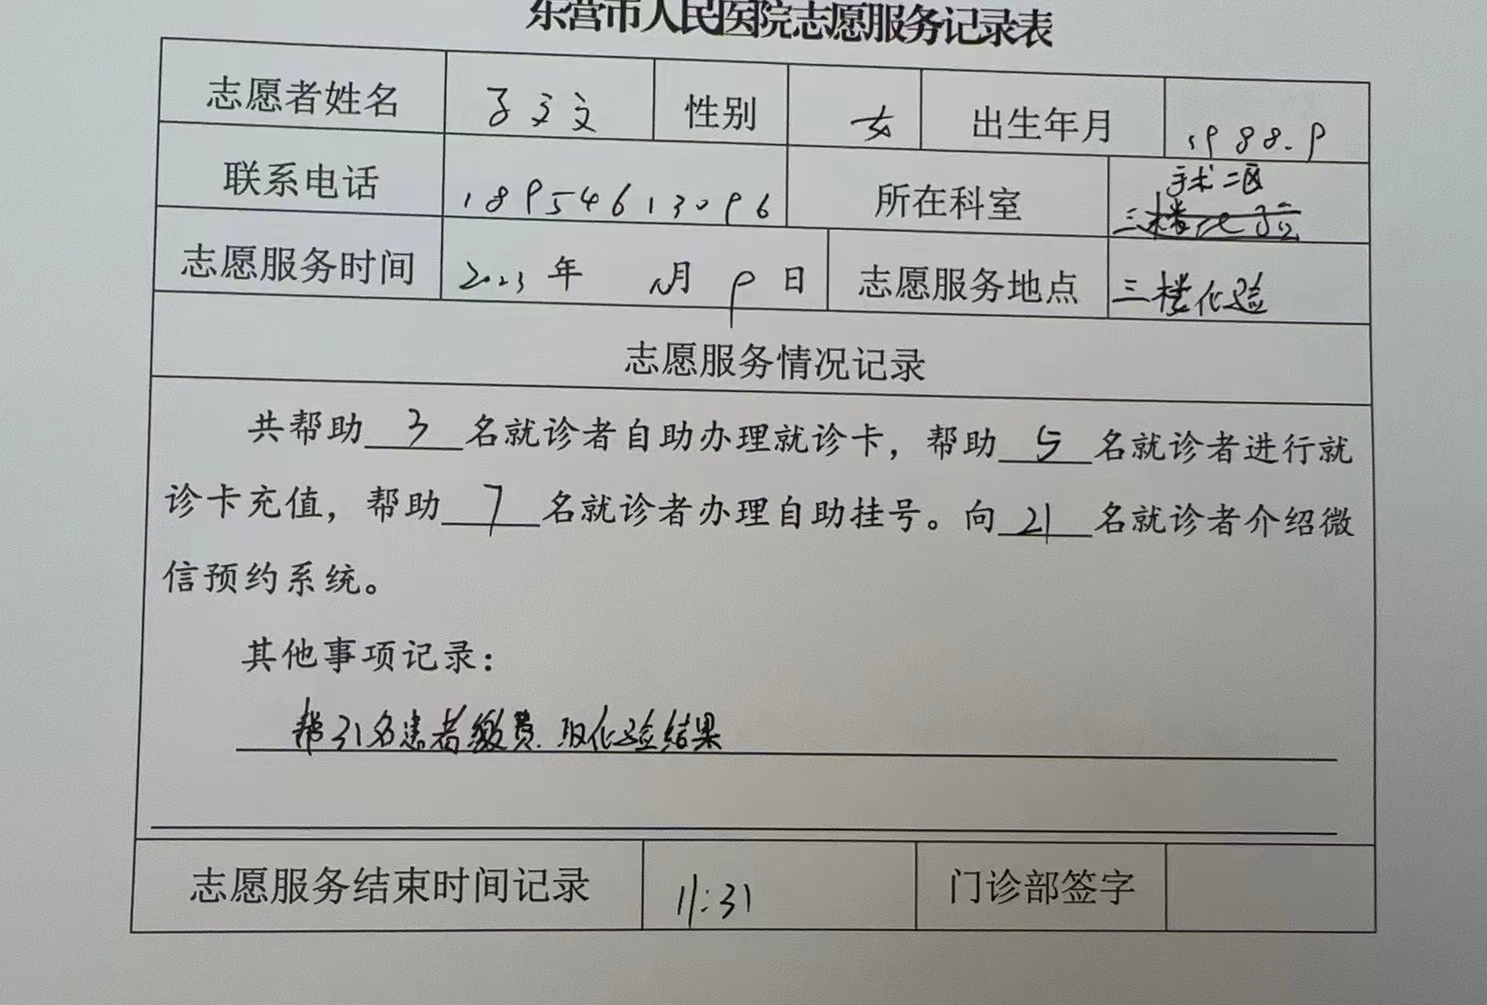 东营市人民医院志愿服务记录表
志愿者姓名 性别 女 出生年月 1988.9
联系电话 18954613096 所在科室 手术二区
三楼化验
志愿服务时间 2023年 月9日 志愿服务地点 三楼化验
志愿服务情况记录
共帮助 3 名就诊者自助办理就诊卡，帮助 5 名就诊者进行就
诊卡充值，帮助 7 名就诊者办理自助挂号。向 21 名就诊者介绍微
信预约系统。
其他事项记录：
帮31名患者缴费.取化验结果
志愿服务结束时间记录 11:31 门诊部签字